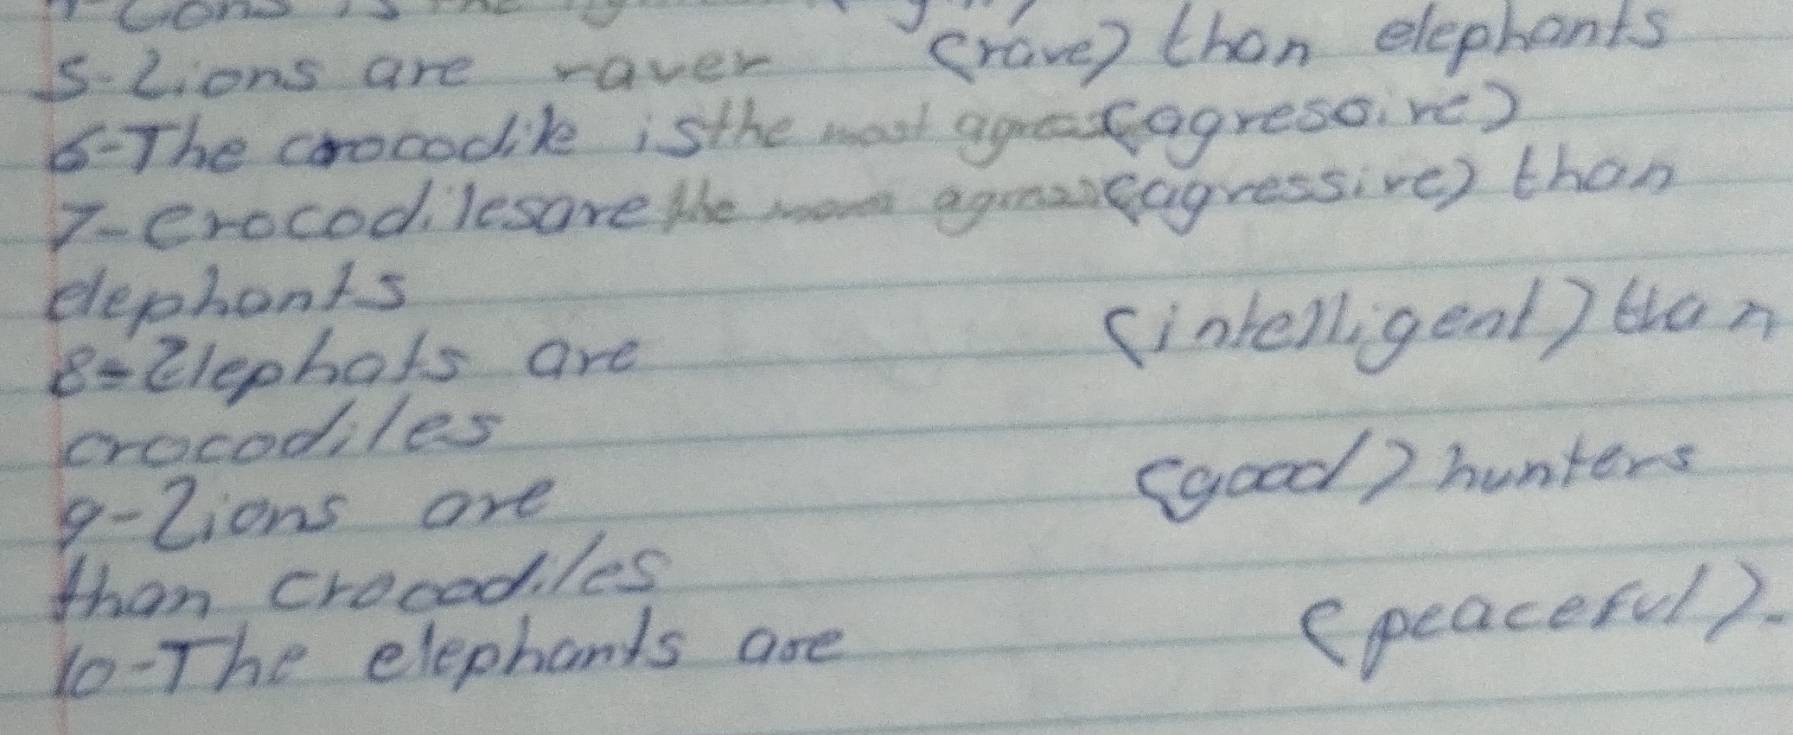 5-Lions are raver (rave) than elephants
6-The crocodile is the most agress (agressive)
7-Crocodiles are the more agress (agressive) than
elephants
8-Elephats are (intelligent) than
crocodiles
9-Lions are (good) hunters
than crocodiles
10-The elephants are (peaceful).